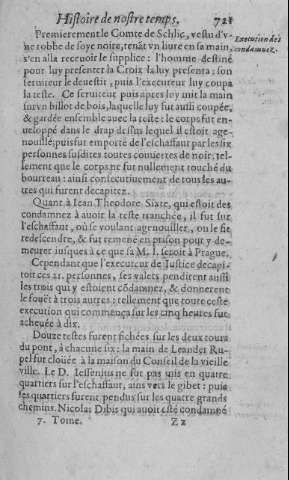 Histoire de nostre temps. 721
Premierement le Comte de Schlic, vestu d'v-
ne robbe de soye noire, tenāt vn liure en sa main,
s'en alla receuoir le supplice: l'homme destiné
pour luy presenter la Croix la luy presenta: son
seruiteur le deuestit, puis l'executeur luy coupa
la teste. Ce seruiteur puis apres luy mit la main
sur vn billot de bois, laquelle luy fut aussi coupée,
& gardée ensemble auec la teste: le corps fut en-
ueloppé dans le drap dessus lequel il estoit age-
nouillé, puis fut emporté de l'eschaffaut par les six
personnes susdites toutes couuertes de noir, tel-
lement que le corps ne fut nullement touché du
bourreau: ainsi consecutiuement de tous les au-
tres qui furent decapitez.
Quant à Iean Theodore Sixte, qui estoit des
condamnez à auoir la teste tranchée, il fut sur
l'eschaffaut, où se voulant agenouiller, on le fit
redescendre, & fut remené en prison pour y de-
meurer iusques à ce que sa M. I. seroit à Prague.
Cependant que l'executeur de Iustice decapi-
toit ces 21. personnes, ses valets pendirent aussi
les trois qui y estoient cōdamnez, & donnerent
le foüet à trois autres: tellement que toute ceste
execution qui commença sur les cinq heures fut
acheuée à dix.
Douze testes furent fichées sur les deux tours
du pont, à chacune six: la main de Leander Ru-
pel fut cloüée à la maison du Conseil de la vieille
ville. Le D. Iessenius ne fut pas mis en quatre
quartiers sur l'eschaffaut, ains vers le gibet: puis
ses quartiers furent pendus sur les quatre grands
chemins. Nicolas Dibis qui auoit esté condamné
7. Tome. Zz
Execution des
condamnez.